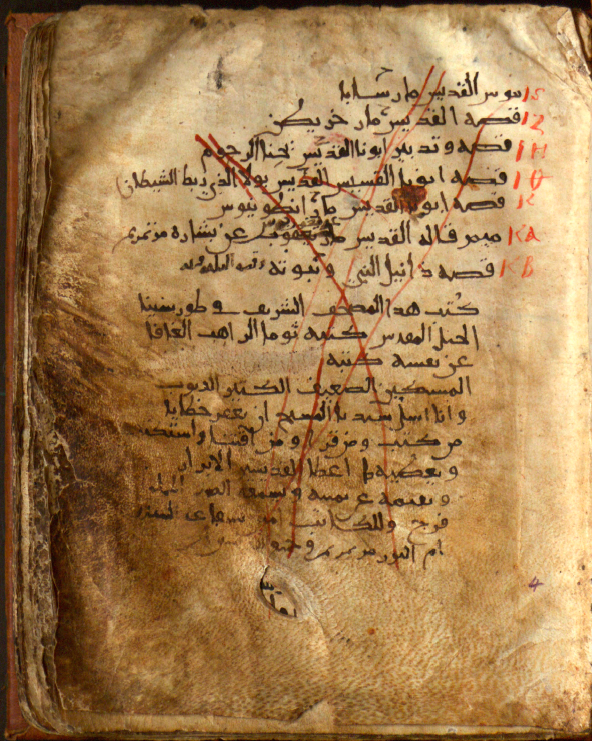 نوس القديس مار سابا ιs
قصه القديس مار خريطن ιζ
قصه وتدبير ابونا القديس يحنا الرحوم ιη
قصه ابونا القسيس القديس بولا الذي ربط الشيطان ιθ
قصه ابونا القديس مار انطونيوس κ
ميمر قاله القديس مار يعقوب عن بشارة مرتمريم κα
قصه دانيل النبي ونبوته κβ
كتب هدا المصحف الشريف في طور سينا
الجبل المقدس كتبه توما الراهب
عن نفسه كتبه
المسكين الضعيف الكثير الذنوب
وانا اسل سيدنا المسيح ان يغفر خطايا
من كتب ومن قرا ومن اقتنا
ويعطيه ما اعطا لقديسيه الابرار
ويسمع الصوت
فرح وللكاتب امين
ام النور مرتمريم
4